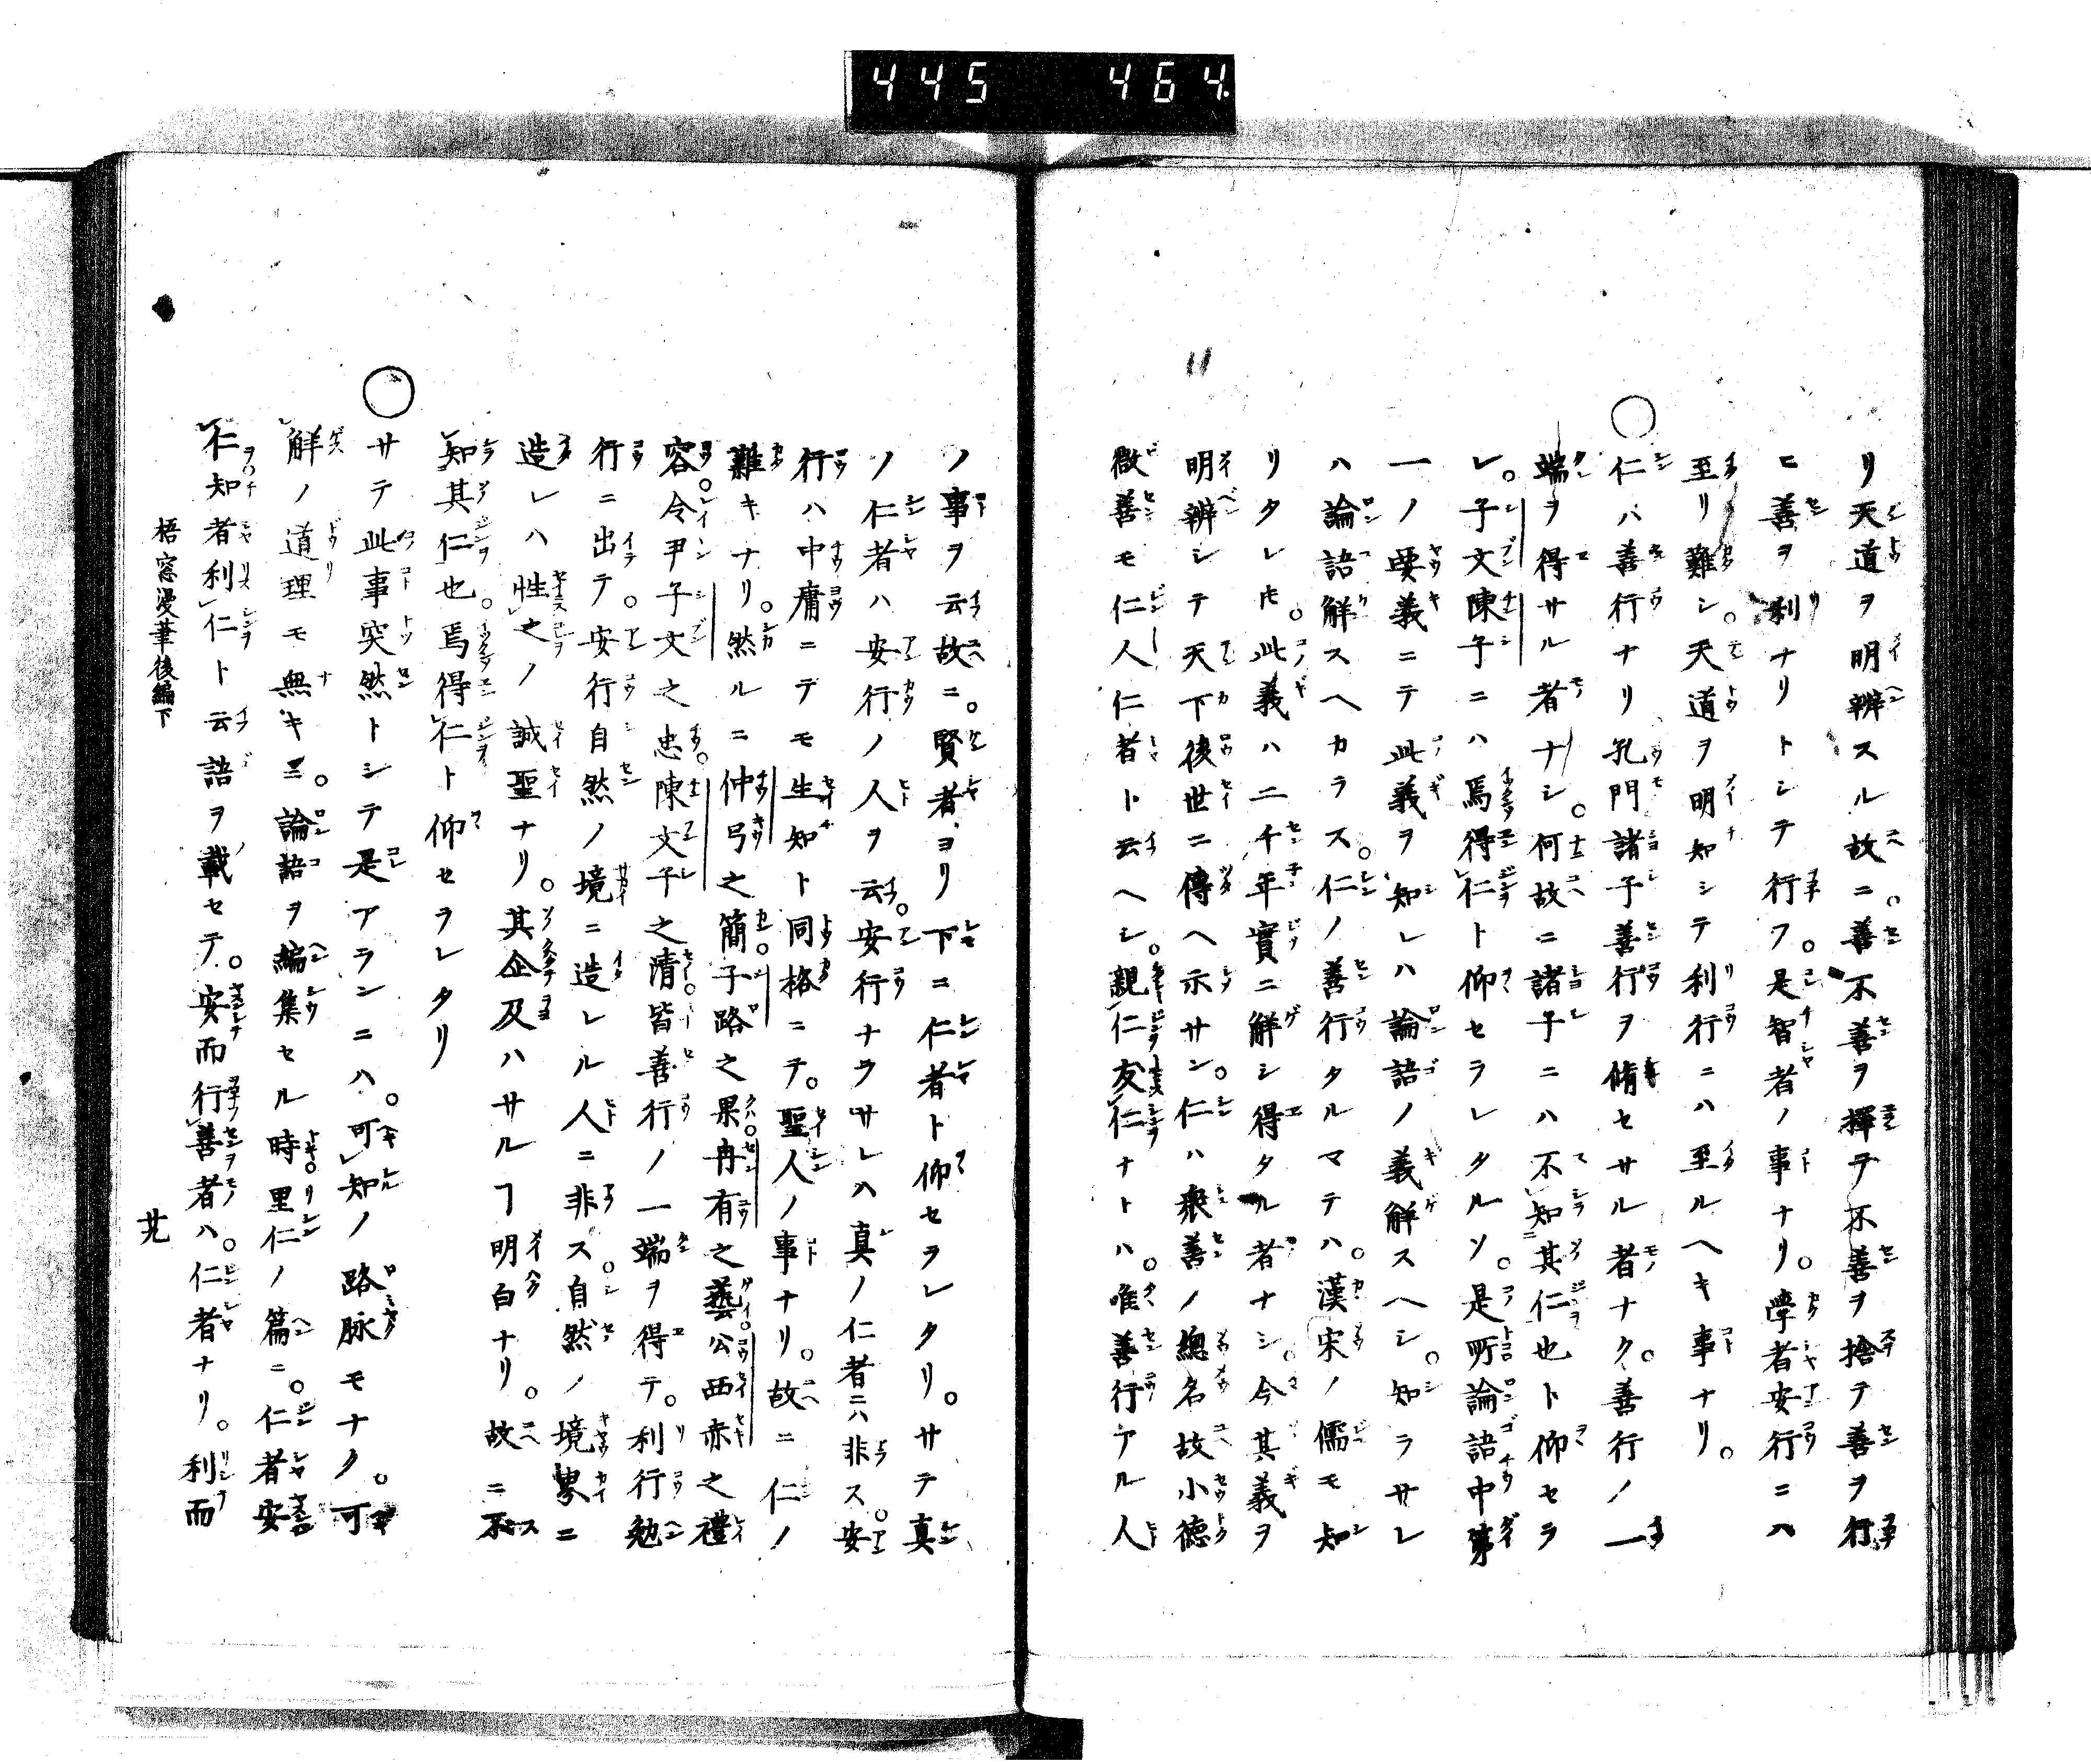 445 464.
リ天道ヲ明辨スル故ニ。善不善ヲ擇テ不善ヲ捨テ善ヲ行
ヒ善ヲ利ナリトシテ行フ。是智者ノ事ナリ。學者安行ニハ
至リ難シ。天道ヲ明知シテ利行ニハ至ルヘキ事ナリ。
○仁ハ善行ナリ孔門諸子善行ヲ脩セサル者ナク。善行ノ一
端ヲ得サル者ナシ。何故ニ諸子ニハ不知其仁也ト仰セラ
レ。子文陳子ニハ焉得仁ト仰セラレタルソ。是所論語中第
一ノ要義ニテ此義ヲ知レハ論語ノ義解スヘシ。知ラサレ
ハ論語解スヘカラス。仁ノ善行タルマテハ。漢宋ノ儒モ知
リタレ𪜈。此義ハ二千年實ニ解シ得タル者ナシ。今其義ヲ
明辨シテ天下後世ニ傳ヘ示サン。仁ハ衆善ノ總名故小德
微善モ仁人仁者ト云ヘシ。親仁友仁ナトハ。唯善行アル人
ノ事ヲ云故ニ。賢者ヨリ下ニ仁者ト仰セヲレタリ。サテ真
ノ仁者ハ安行ノ人ヲ云。安行ナラサレハ真ノ仁者ニハ非ス。安
行ハ中庸ニテモ生知ト同格ニテ。聖人ノ事ナリ。故ニ仁ノ
難キナリ。然ルニ仲弓之簡子路之果冉有之藝公西赤之禮
容。令尹子文之忠。陳文子之清。皆善行ノ一端ヲ得テ。利行勉
行ニ出テ。安行自然ノ境ニ造レル人ニ非ス。自然ノ境界ニ
造レハ性之ノ誠聖ナリ。其企及ハサルヿ明白ナリ。故ニ不
知其仁也。焉得仁ト仰セラレタリ
○サテ此事突然トシテ是アランニハ。可知ノ路脉モナク。可
解ノ道理モ無キニ。論語ヲ編集セル時。里仁ノ篇ニ。仁者安
仁知者利仁ト云語ヲ載セテ。安而行善者ハ。仁者ナリ。利而
梧窓漫筆後編下
廿九